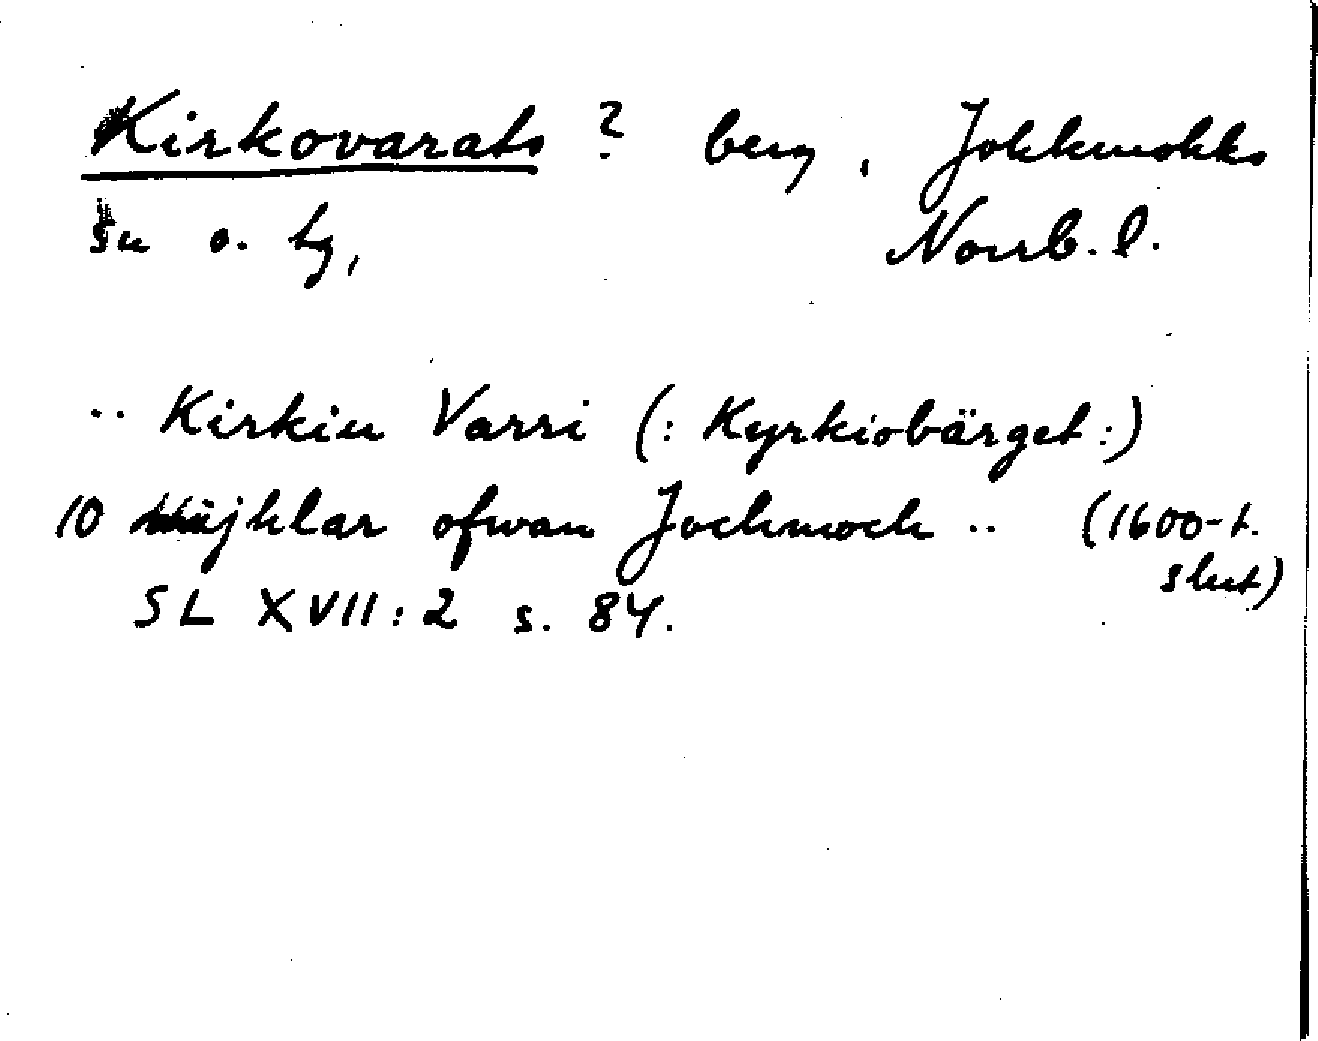 Kirkovarats ? berg, Jokkmokks
sn o. tg, Norrb. l.
.. Kirkiu Varri (: Kyrkiobärget :)
10 mijhlar ofwan Jochmoch .. (1600-t. slut)
SL XVII:2 s. 84.